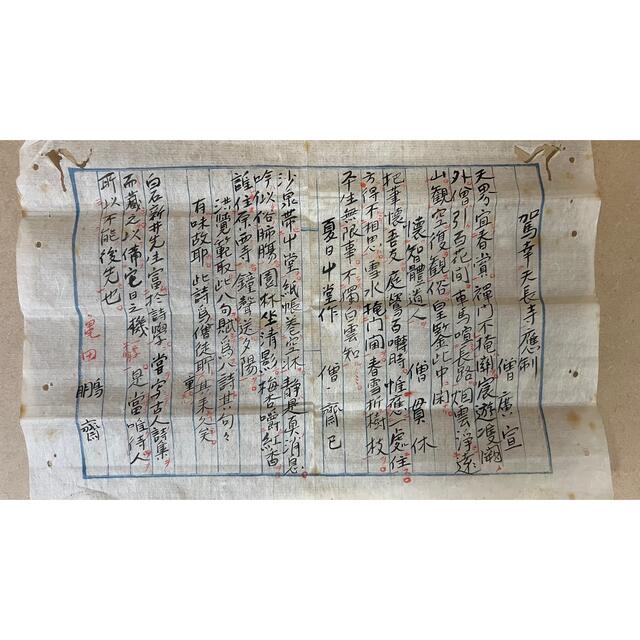 駕幸天長寺應制
僧廣宣
天界宜春賞禪門不掩關宸遊雙闕
外僧引百花間車馬喧長路烟雲淨遠
山觀空復觀俗皇鑒此中閑
懷智體道人 僧貫休
把筆懷吾友庭鶯百囀時惟應處住
方得不相思雪水巻門囬春雪折樹枝
平生無限事不獨白雲知
夏日山堂作 僧齊己
沙泉帶山堂紙帳卷空牀靜是真消息
吟似俗肺腸園林坐清影梅杏嚼紅香
誰住原西寺鐘聲送夕陽
洪覺範取此八句賦爲八詩其六句々
有味故耶此詩爲僧徒所其来久矣
白石新井先生富於詩學嘗字古人詩集
而蔵之以備它日之機是當唯待人
所以不能後先也
亀田鵬齋